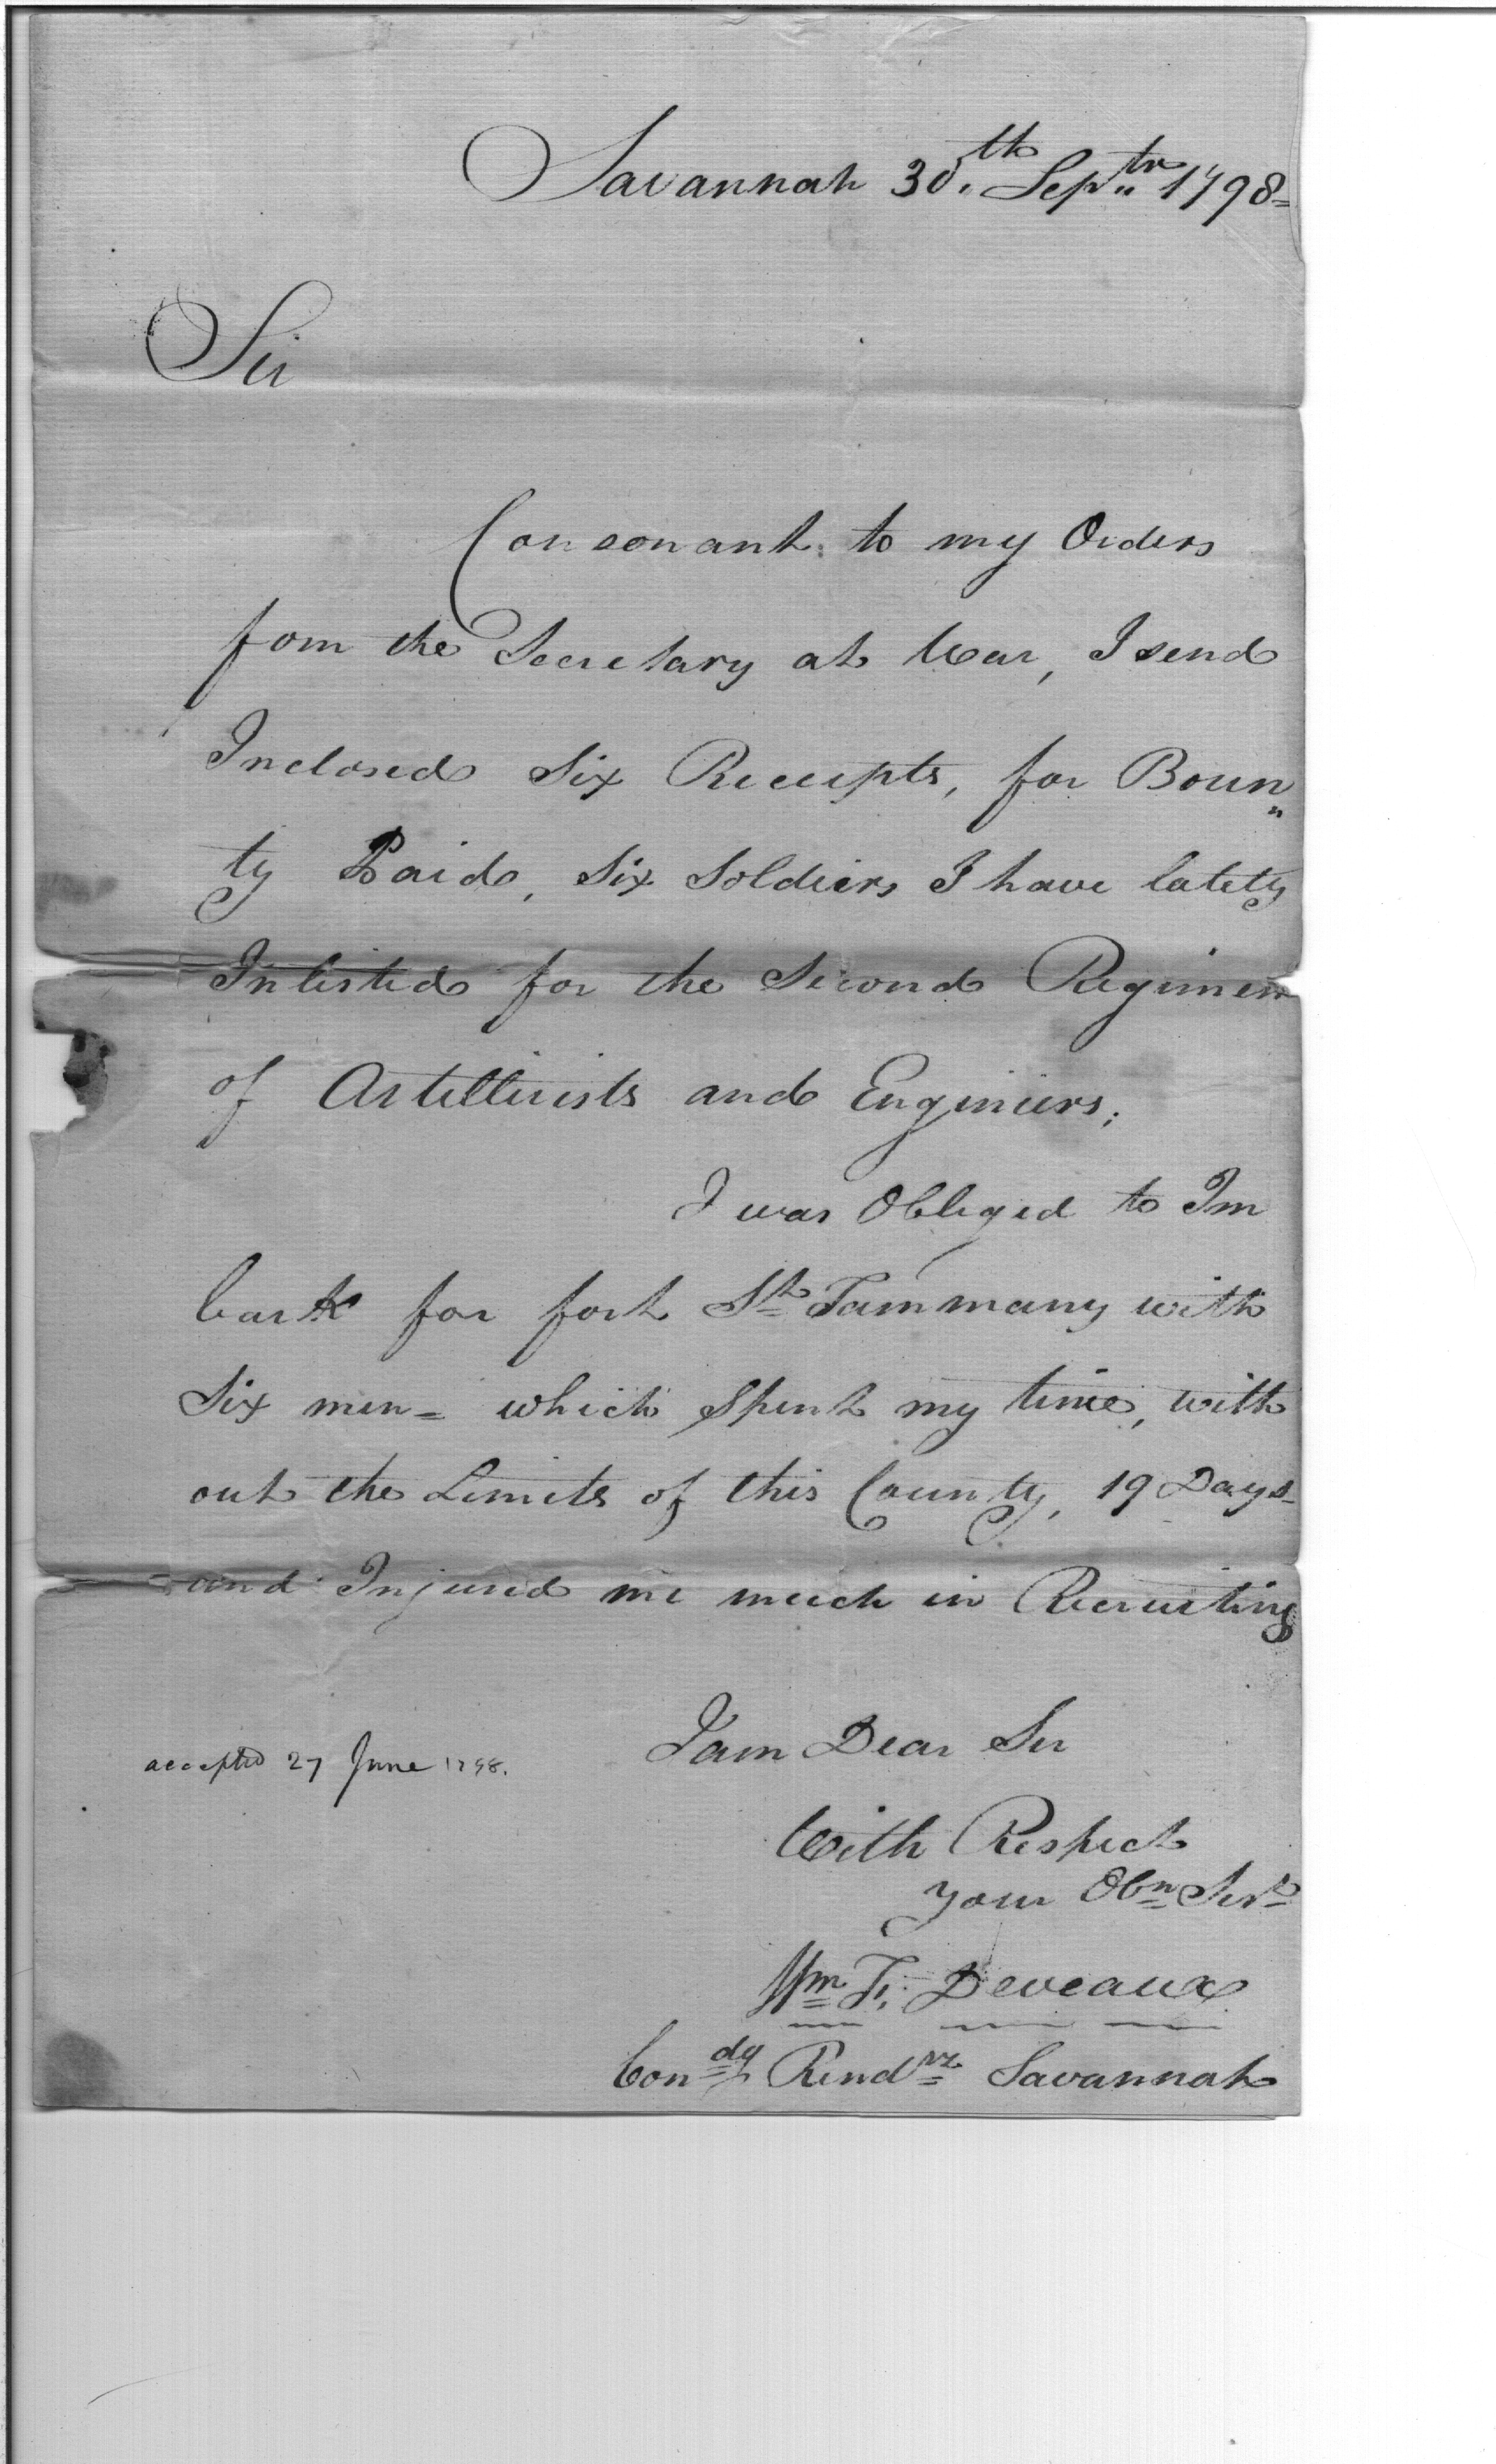 Savannah 30th Septr 1798=
Sir
Consonant to my Orders
fom the Secretary at War, I send
Inclosed Six Receipts, for Boun„
ty Paid, Six Soldiers I have lately
Inlisted for the Second Regimen
of Artillerists and Engineers;
I was Obliged to Im
bark for fort St Tammany with
Six men= which spent my time, with
out the Limits of this County, 19 Days-
and Injured me much in Recruiting
I am Dear Sir
accepted 27 June 1798.
With Respect
your Obn Servt
Wm F. Deveaux
Comdg Rendvz Savannah